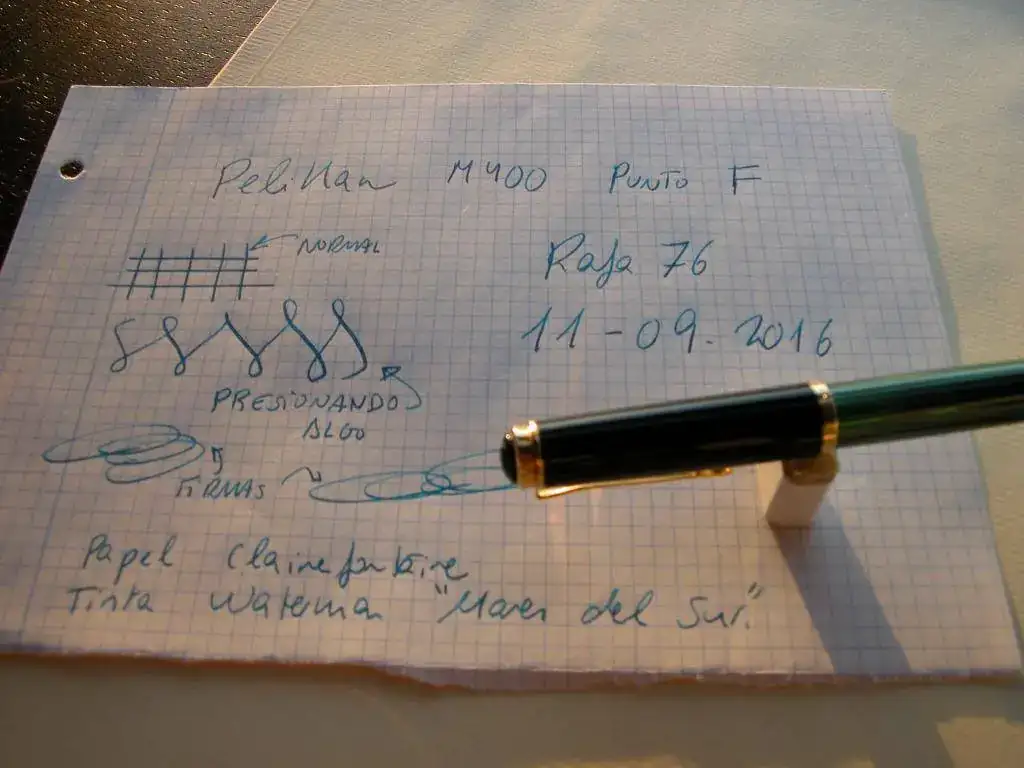 Pelikan M400 PUNTO F
NORMAL
Rafa 76
11-09.2016
PRESIONANDO
ALGO
FIRMAS
Papel Clairefontaine
Tinta Waterman "Mares del Sur."